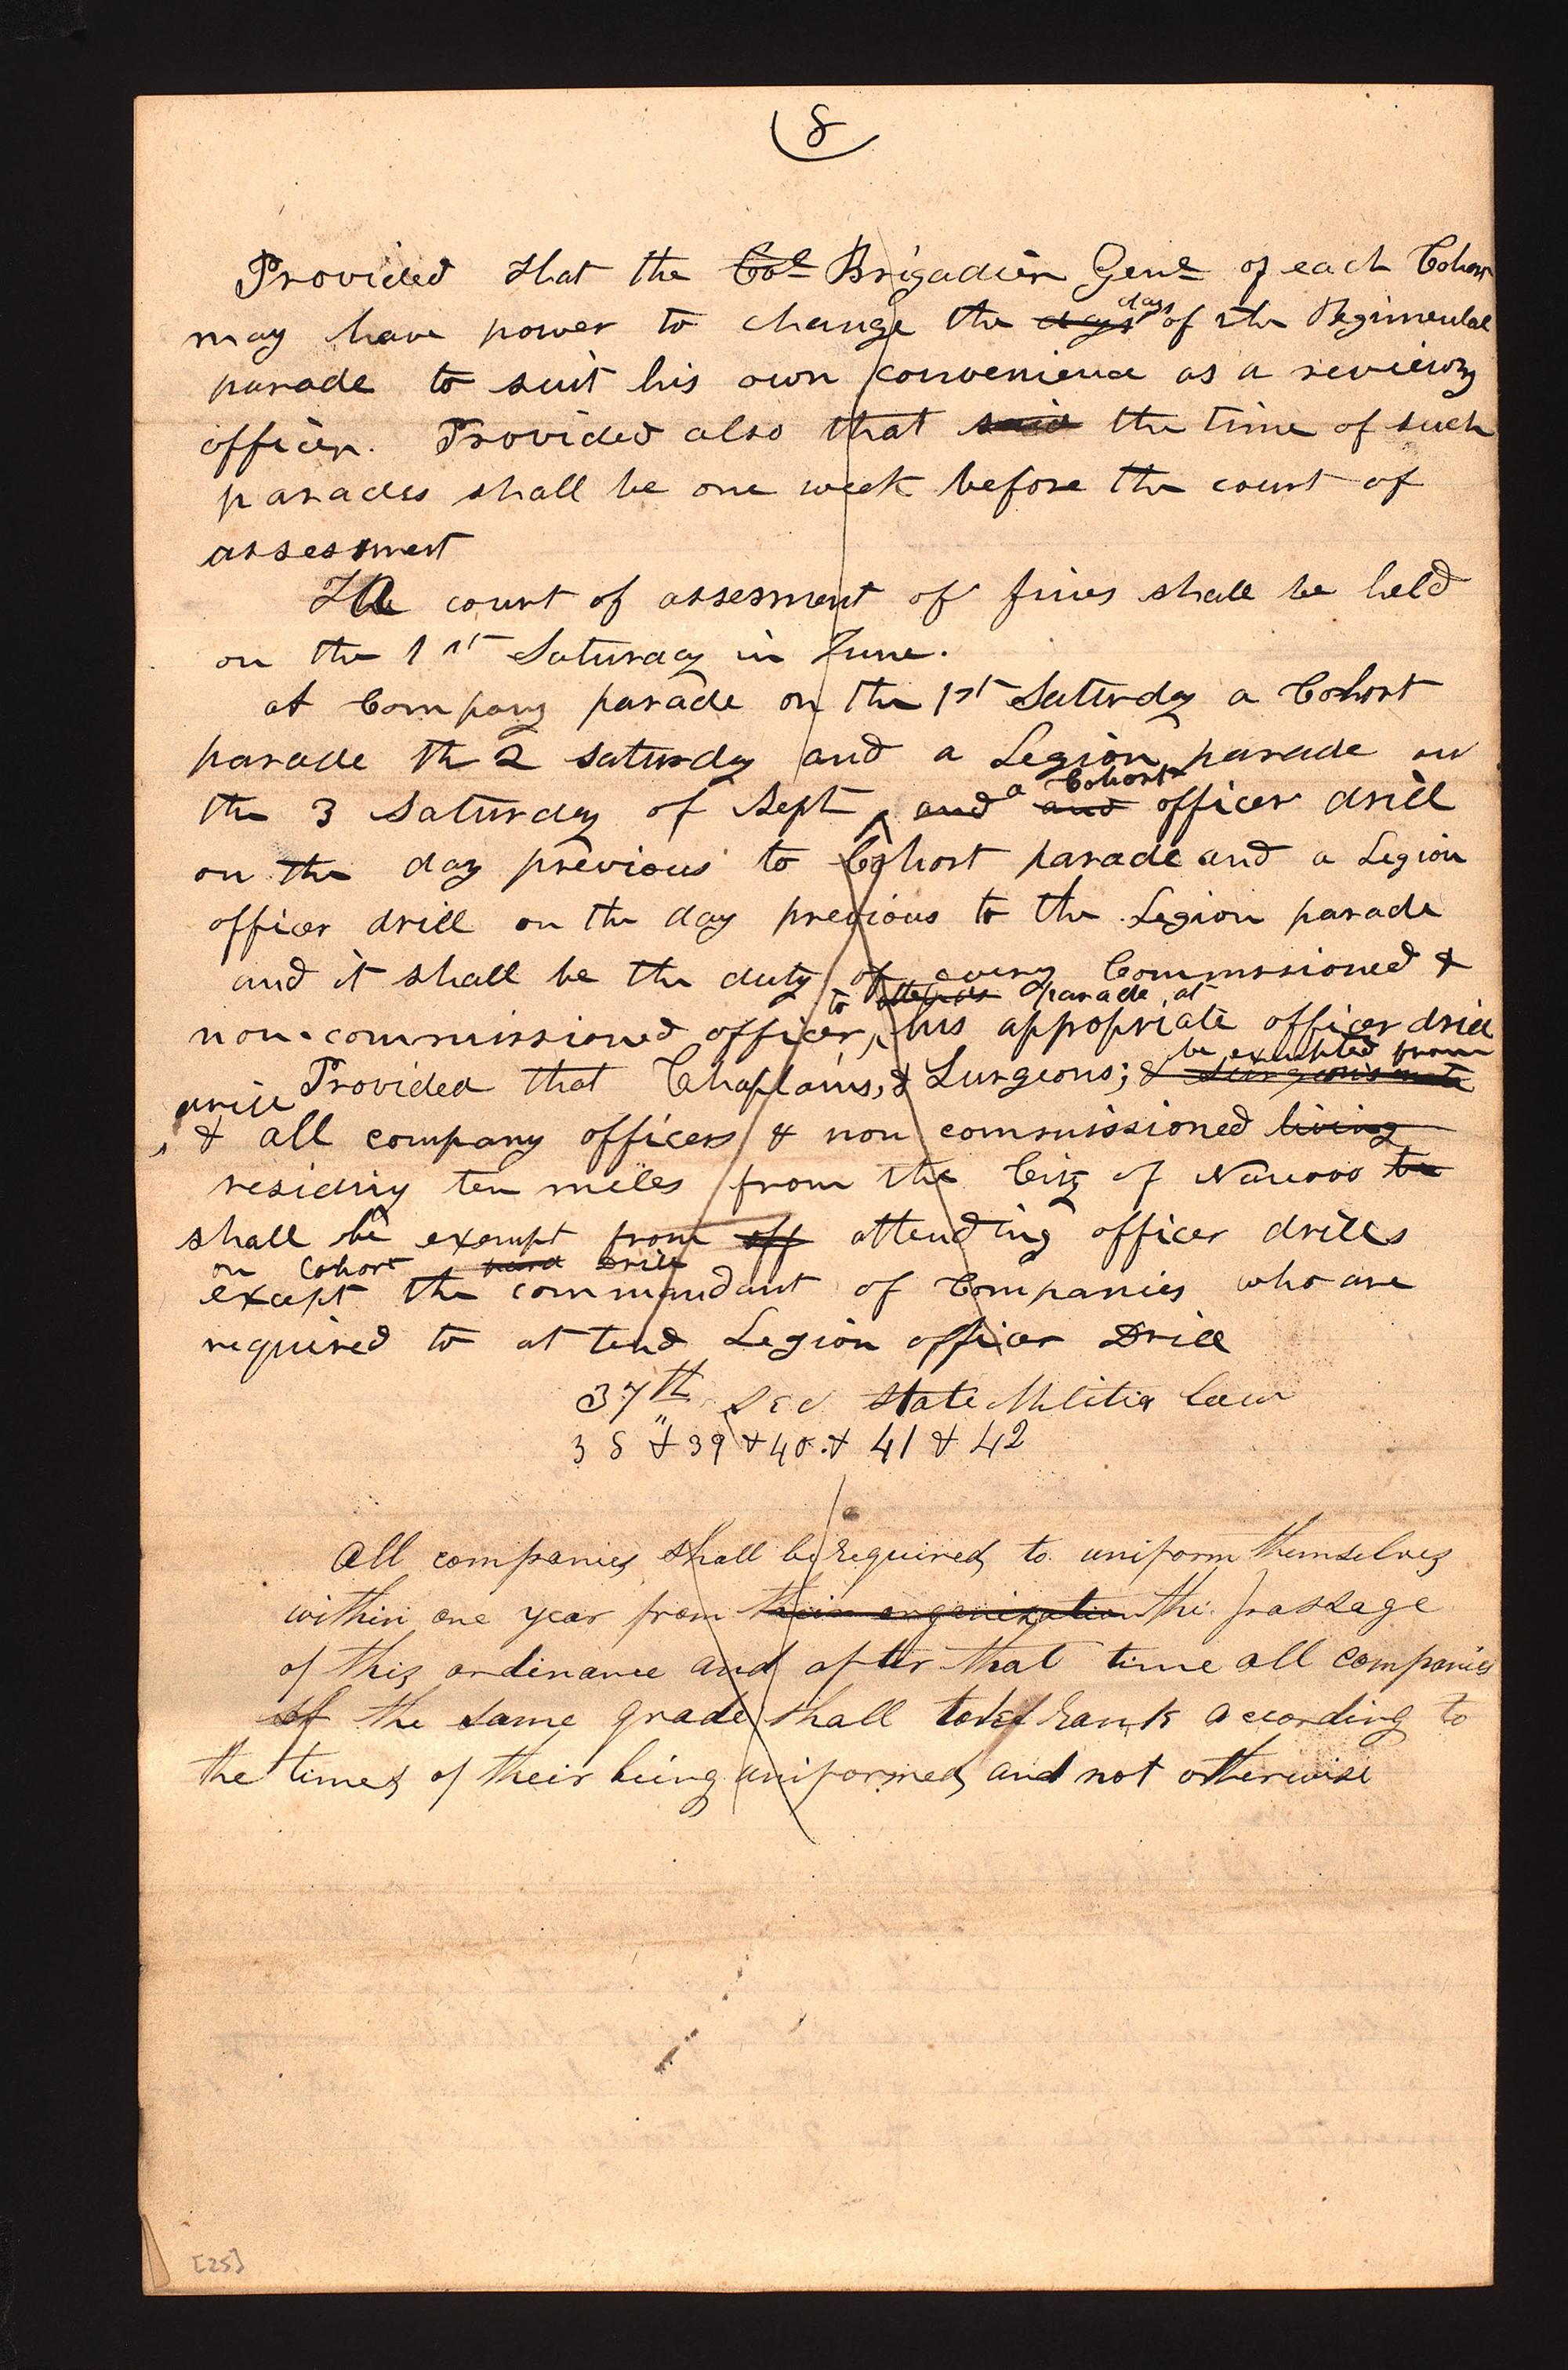 8
Provided that the Col Brigadier Genl of each Cohort
may have power to change the days days of the Regimental
parade to suit his own convenience as a reviewing
officer. Provided also that said the time of such
parades shall be one week before the court of
assessment
The court of assessment of fines shall be held
on the 1st Saturday in June.
at Company parade on the 1st Saturday a Cohort
parade th 2 saturdy and a Legion parade on
the 3 Saturday of Sept and a Cohort and officer drill
on the day previous to Cohort parade and a Legion
officer drill on the day previous to the Legion parade
and it shall be the duty of every Commissioned &
to attend parade at
non-commissioned officer, his appropriate officer drill
be exempted from
Provided that Chaplains, & Surgeons; & Surgeons mate
drill
& all company officers & non commissioned living
residing ten miles from the City of Nauvoo be
shall be exempt from off attending officer drills
on Cohort drill
except the commandant of Companies who are
required to attend Legion officer Drill
37th Sec State Militia Law
38 " & 39 & 40. & 41 & 42
All companies shall be required to uniform themselves
within one year from their organization the passage
of this ordinance and after that time all companies
of the same grade shall take rank according to
the times of their being uniformed and not otherwise
[25]